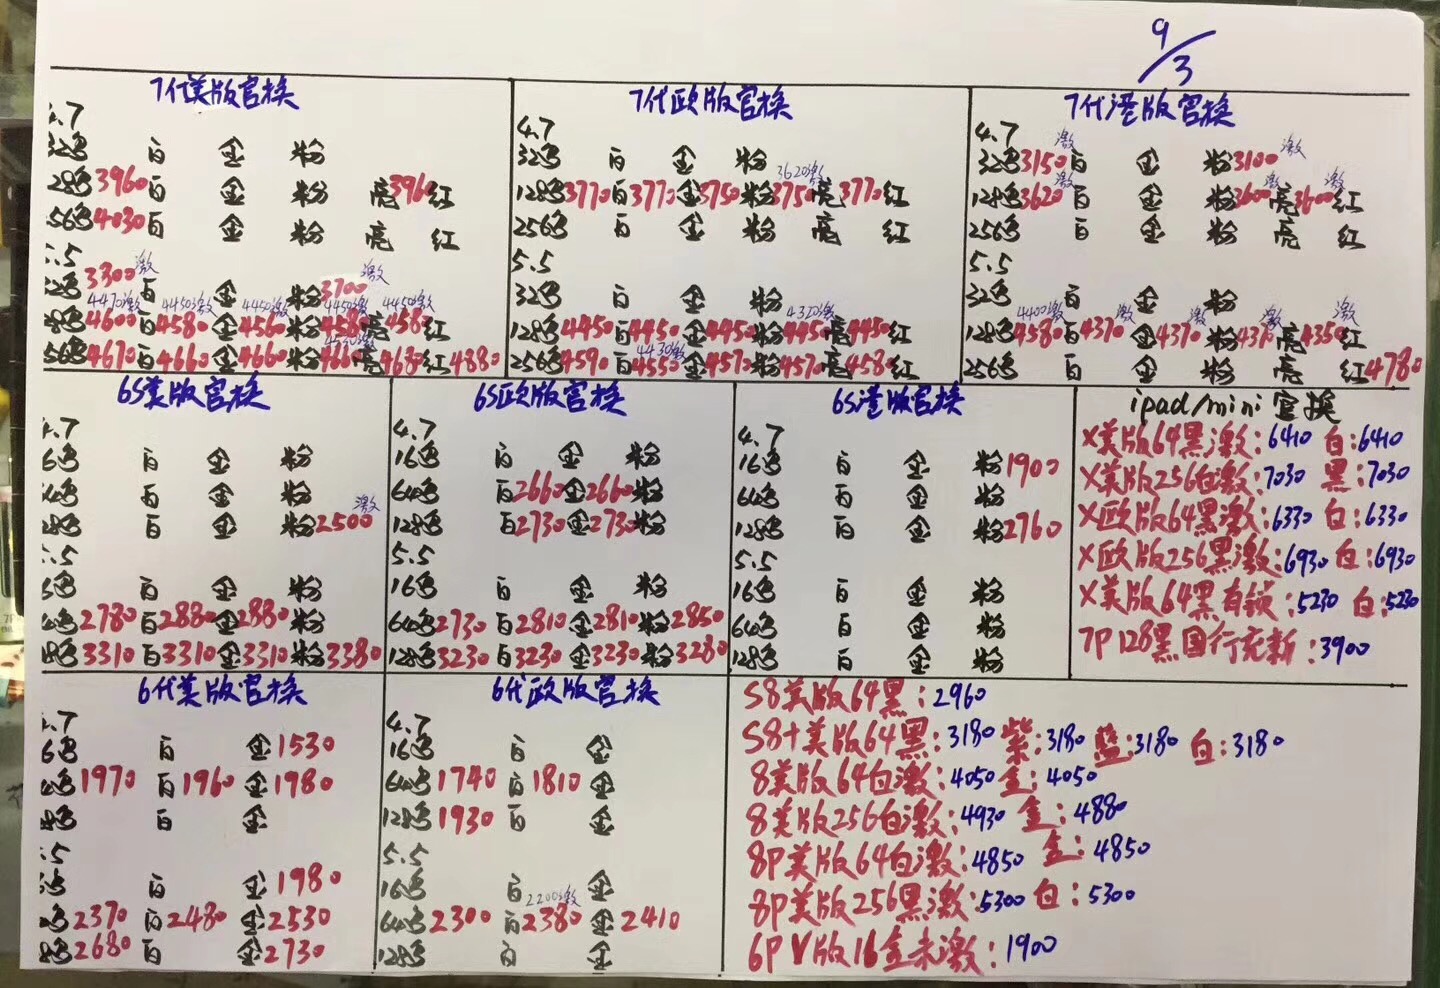 9/3
7代美版官换
.7
32G 白 金 粉
28G 3960 白 金 粉 亮 3960 红
56G 4030 白 金 粉 亮 红
.5
3300激 白 金 粉 3700激
4470激 4450激 4450激 4450激 4450激
8G 4600 白 4580 金 4560 粉 4580 亮 4580 红
56G 4670 白 4660 金 4660 粉 4660 亮 4680 红 4880
7代欧版官换
4.7
32G 白 金 粉
3620激
128G 3770 白 3770 金 3750 粉 3750 亮 3770 红
256G 白 金 粉 亮 红
5.5
32G 白 金 粉
4320激
128G 4450 白 4450 金 4450 粉 4450 亮 4450 红
4430激
256G 4590 白 4550 金 4570 粉 4570 亮 4580 红
7代港版官换
4.7
32G 3150激 白 金 粉 3100激
128G 3620激 白 金 粉 3600激 亮 3600激 红
256G 白 金 粉 亮 红
5.5
32G 白 金 粉
4400激 激 激 激 激
128G 4580 白 4370 金 4370 粉 4370 亮 4350 红
256G 白 金 粉 亮 红 4780
6S美版官换
.7
6G 白 金 粉
4G 白 金 粉
28G 白 金 粉 2500激
.5
6G 白 金 粉
4G 2780 白 2880 金 2880 粉
28G 3310 白 3310 金 3310 粉 3380
6S欧版官换
4.7
16G 白 金 粉
64G 白 2660 金 2660 粉
128G 白 2730 金 2730 粉
5.5
16G 白 金 粉
64G 2730 白 2810 金 2810 粉 2850
128G 3230 白 3230 金 3230 粉 3280
6S港版官换
4.7
16G 白 金 粉 1900
64G 白 金 粉
128G 白 金 粉 2760
5.5
16G 白 金 粉
64G 白 金 粉
128G 白 金 粉
ipad/mini 官换
X美版64黑激:6410 白:6410
X美版256白激:7030 黑:7030
X欧版64黑激:6330 白:6330
X欧版256黑激:6930 白:6930
X美版64黑有锁:5230 白:5230
7P 128黑国行充新:3900
6代美版官换
.7
6G 白 金 1530
4G 1970 白 1960 金 1980
28G 白 金
.5
6G 白 金 1980
4G 2370 白 2480 金 2530
28G 2680 白 金 2730
6代欧版官换
4.7
16G 白 金
64G 1740 白 1810 金
128G 1930 白 金
5.5
16G 白 金
2200激
64G 2300 白 2380 金 2410
128G 白 金
S8美版64黑:2960
S8+美版64黑:3180 紫:3180 蓝:3180 白:3180
8美版64白激:4050 金:4050
8美版256白激:4930 金:4880
8P美版64白激:4850 金:4850
8P美版256黑激:5300 白:5300
6P V版16金未激:1900